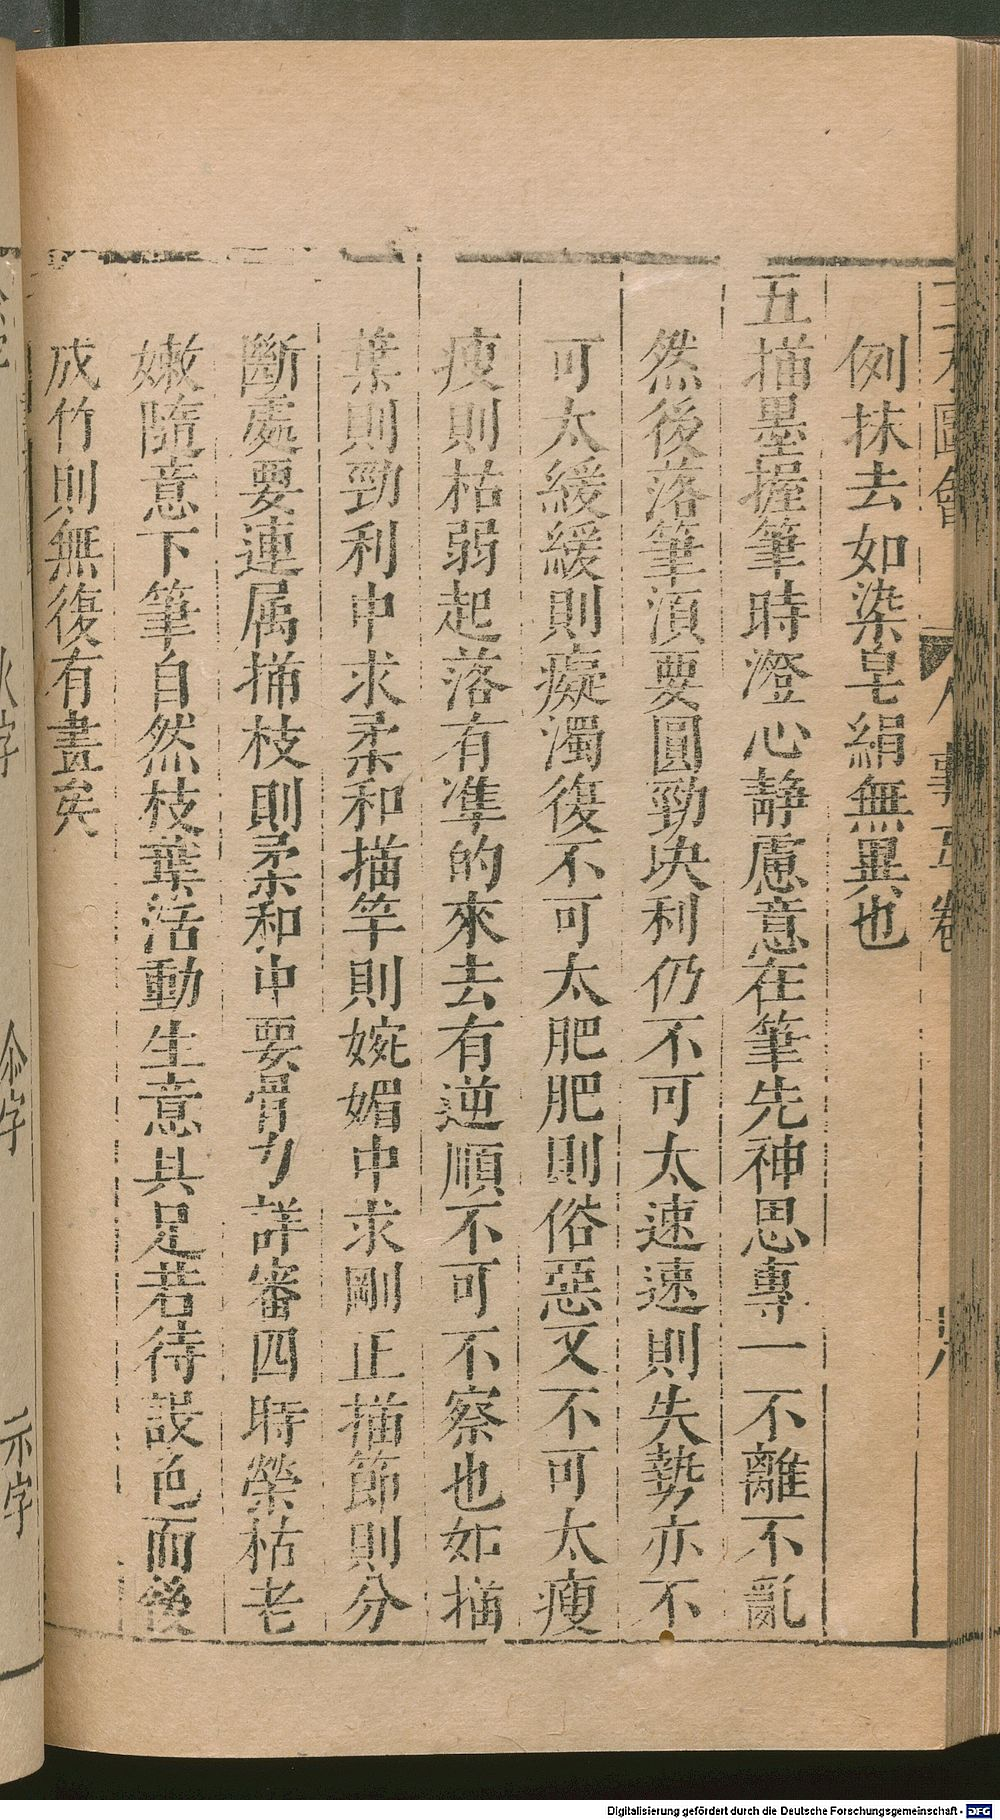 三才圖會 人事五卷
例抹去如染皂絹無異也
五描墨握筆時澄心静慮意在筆先神思專一不離不亂
然後落筆湏要圓勁决利仍不可太速速則失勢亦不
可太緩緩則癡濁復不可太肥肥則俗惡又不可太瘦
瘦則枯弱起落有準的來去有逆順不可不察也如描
葉則勁利中求柔和描竿則婉媚中求剛正描節則分
斷處要連属描枝則柔和中要骨力詳審四時榮枯老
嫩隨意下筆自然枝葉活動生意具足若待設色而後
成竹則無復有畫矣
示字
Digitalisierung gefördert durch die Deutsche Forschungsgemeinschaft - DFG